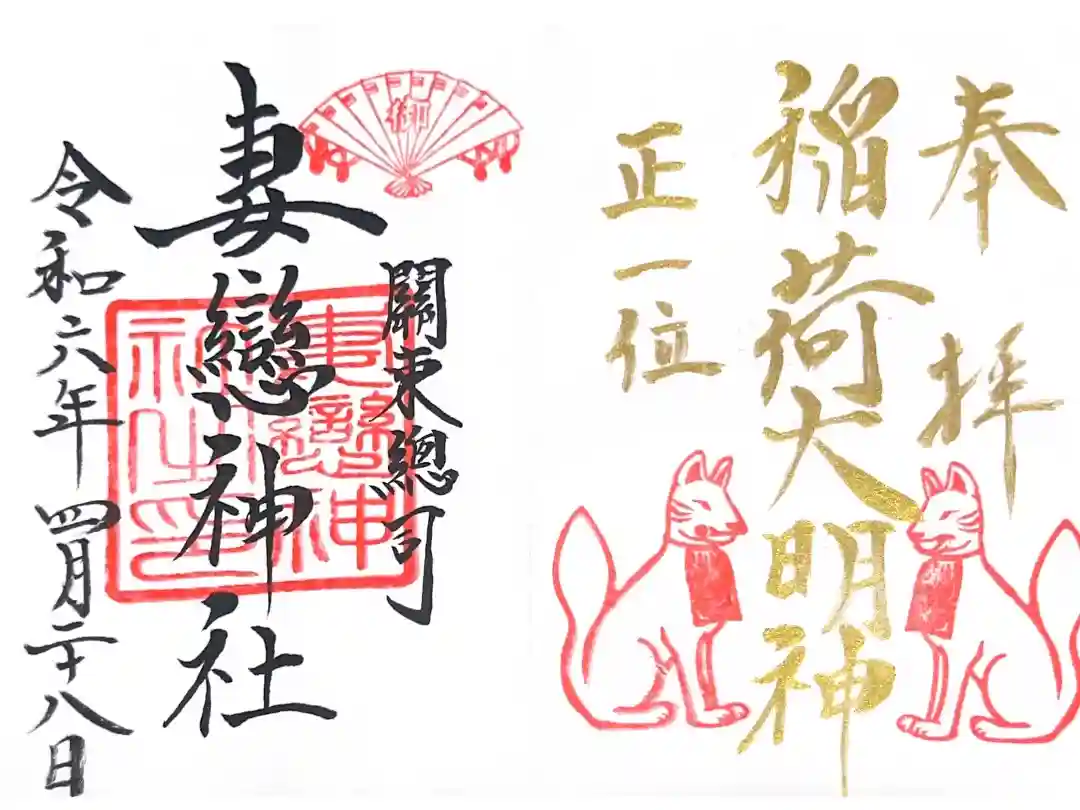 奉拝
稲荷大明神
正一位
御
關東總司
妻戀神社
妻戀神
社之印
令和六年四月二十八日